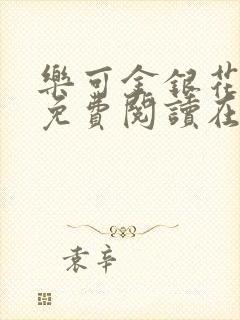 樂可金銀花
免費閱讀在
袁辛